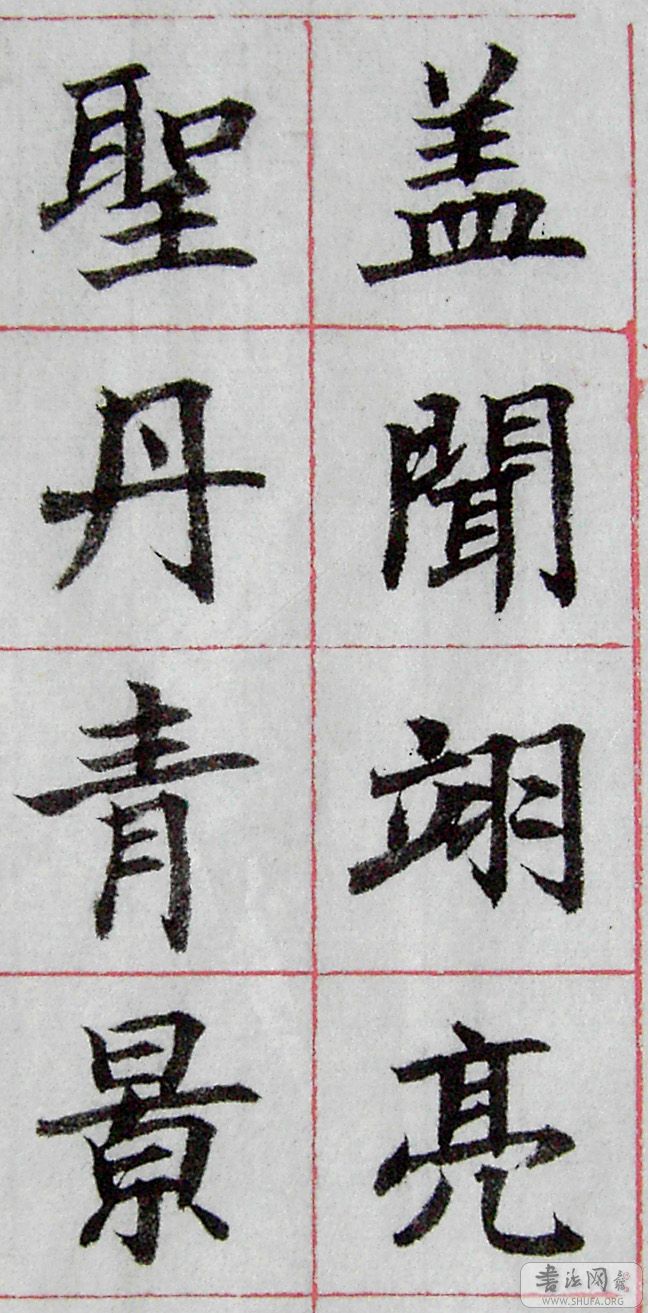 盖聞翊亮
聖丹青景
書法网
WWW.SHUFA.ORG